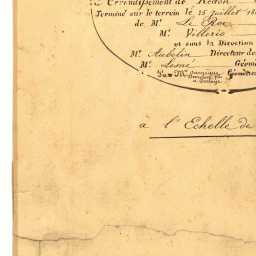 Arrondissement de Redon
Terminé sur le terrein le 15 juillet 18
de Mr Le Roc
Mr Villerio
et sous la Direction
Mr Aubelin Directeur de
Mr Lesné Géom
Par Mr Géomètre
à l'Echelle de